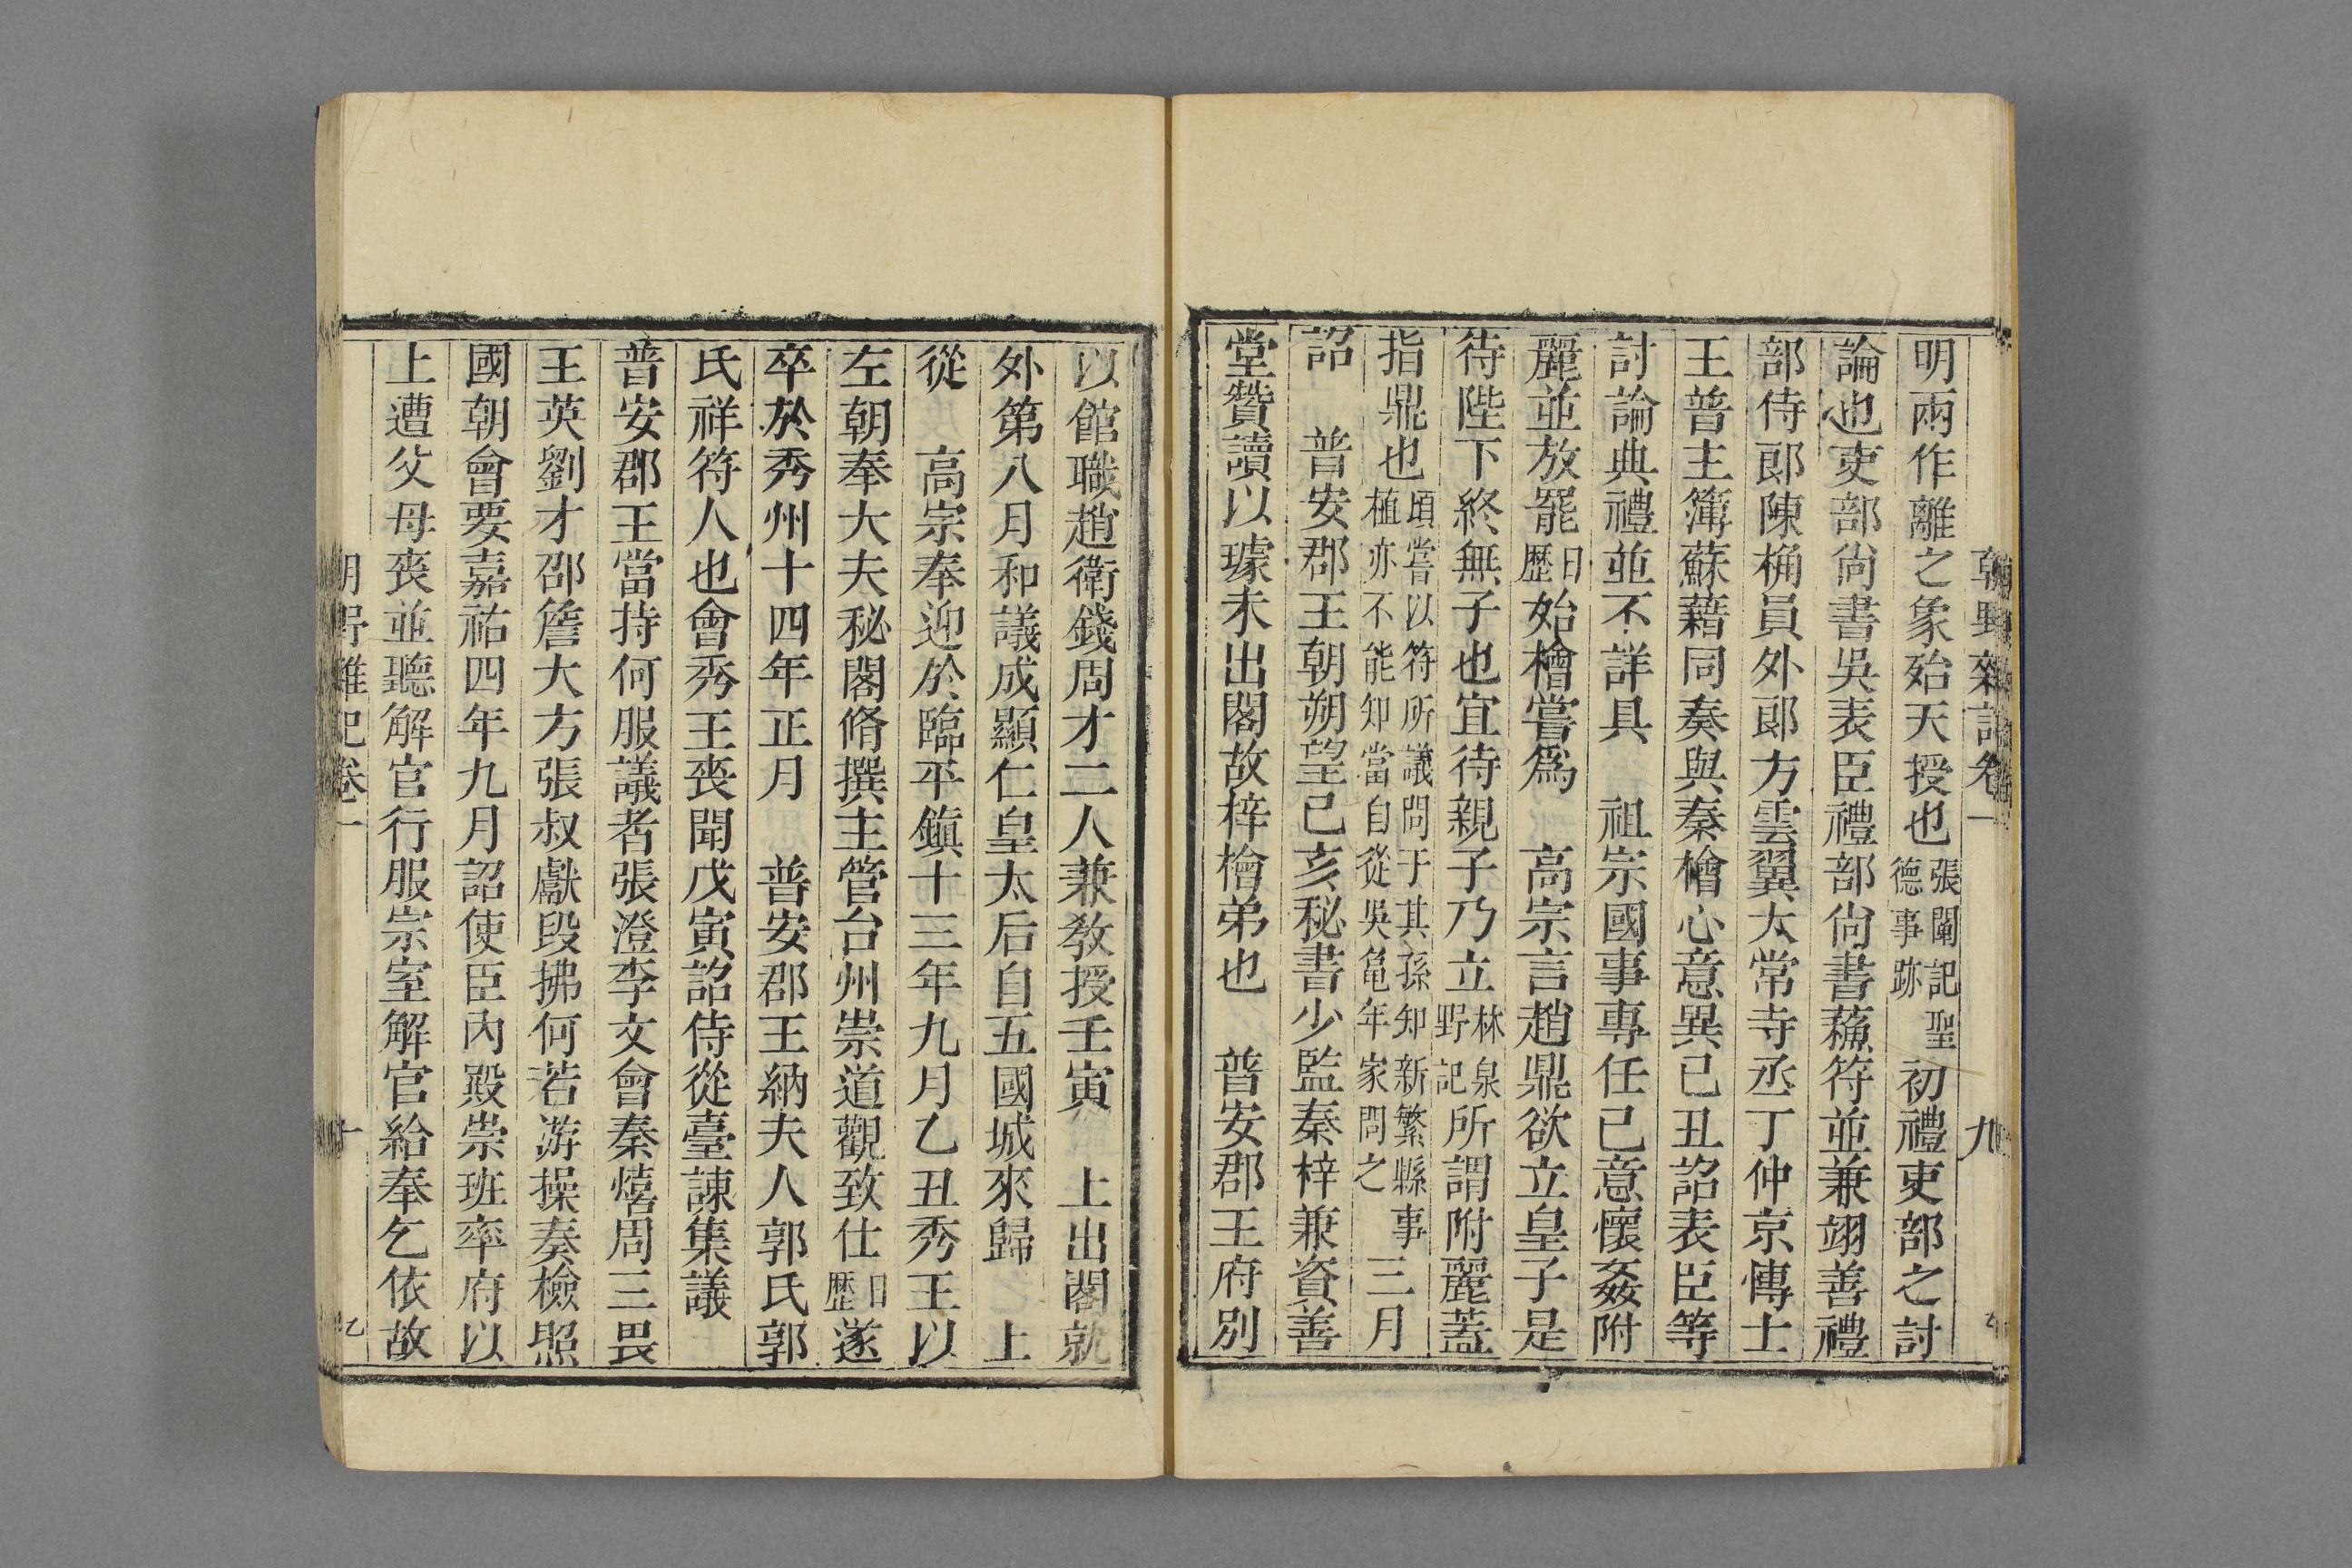 朝野雜記卷一 九
明兩作離之象殆天授也張闡記聖德事跡初禮吏部之討
論也吏部尙書吳表臣禮部尙書蘓符並兼翊善禮
部侍郎陳桷員外郎方雲翼太常寺丞丁仲京傳士
王普主簿蘇藉同奏與秦檜心意異己丑詔表臣等
討論典禮並不詳具 祖宗國事專任己意懷姦附
麗並放罷日歷始檜嘗爲 高宗言趙鼎欲立皇子是
待陛下終無子也宜待親子乃立林泉野記所謂附麗蓋
指鼎也頃嘗以符所議問于其孫知新繁縣事植亦不能知當自從吳龜年家問之三月
詔 普安郡王朝朔望己亥秘書少監秦梓兼資善
堂贊讀以璩未出閣故梓檜弟也 普安郡王府別
以館職趙衛錢周才二人兼敎授壬寅 上出閣就
外第八月和議成顯仁皇太后自五國城來歸 上
從 高宗奉迎於臨平鎭十三年九月乙丑秀王以
左朝奉大夫秘閣脩撰主管台州崇道觀致仕日歷遂
卒於秀州十四年正月 普安郡王納夫人郭氏郭
氏祥符人也會秀王喪聞戊寅詔侍從臺諫集議
普安郡王當持何服議者張澄李文會秦熺周三畏
王英劉才邵詹大方張叔獻段拂何若游操奏檢照
國朝會要嘉祐四年九月詔使臣內殿崇班率府以
上遭父母喪並聽解官行服宗室解官給奉乞依故
朝野雜記卷一 十 乙